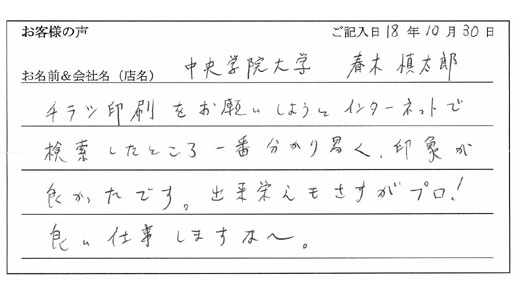 お客様の声 ご記入日 18 年 10 月 30 日
お名前&会社名（店名） 中央学院大学 春木 慎太郎
チラシ印刷をお願いしようとインターネットで
検索したところ一番分かり易く、印象が
良かったです。出来栄えもさすがプロ!
良い仕事しますな〜。